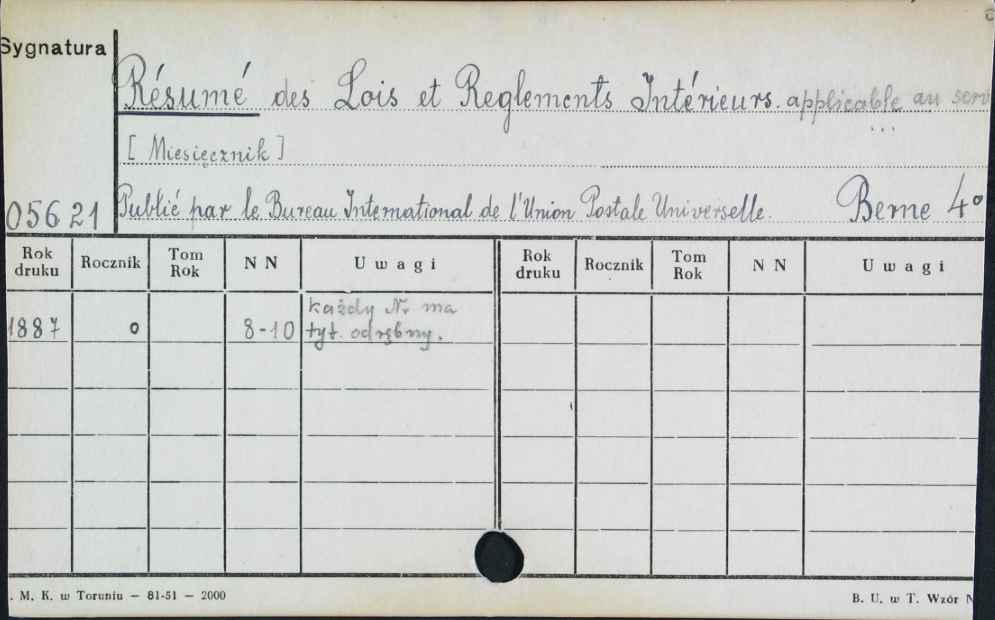 Sygnatura
Résumé des Lois et Reglements Intérieurs. applicable au serv
...
[Miesięcznik]
05621 Publié par le Bureau International de l'Union Postale Universelle. Berne 4°
Rok druku Rocznik Tom Rok N N Uwagi Rok druku Rocznik Tom Rok N N Uwagi
każdy Nr ma
1887 0 8-10 tyt. odrębny.
. M. K. w Toruniu — 81-51 — 2000 B. U. w T. Wzór N